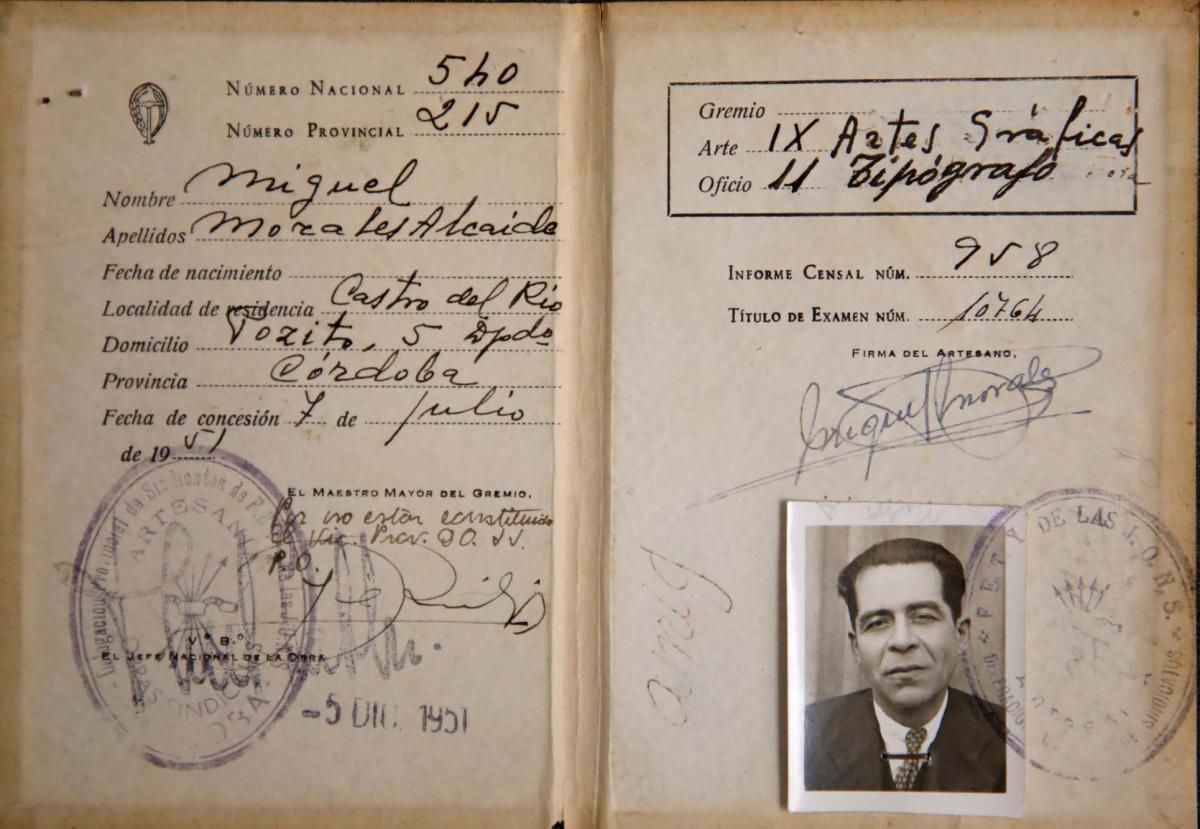 NÚMERO NACIONAL 540
NÚMERO PROVINCIAL 215
Nombre Miguel
Apellidos Morales Alcaide
Fecha de nacimiento
Localidad de residencia Castro del Río
Domicilio Pozito, 5 Dpdo
Provincia Córdoba
Fecha de concesión 7 de julio
de 1951
EL MAESTRO MAYOR DEL GREMIO,
Por no estar constituido
el Vic. Prov.
P.O.
Vº Bº
EL JEFE NACIONAL DE LA OBRA
ARTESANÍA
-5 DIC. 1951
Gremio
Arte IX Artes Gráficas
Oficio 11 Tipógrafo
INFORME CENSAL NÚM. 958
TÍTULO DE EXAMEN NÚM. 10764
FIRMA DEL ARTESANO,
Miguel Morales
F.E.T. y DE LAS J.O.N.S.